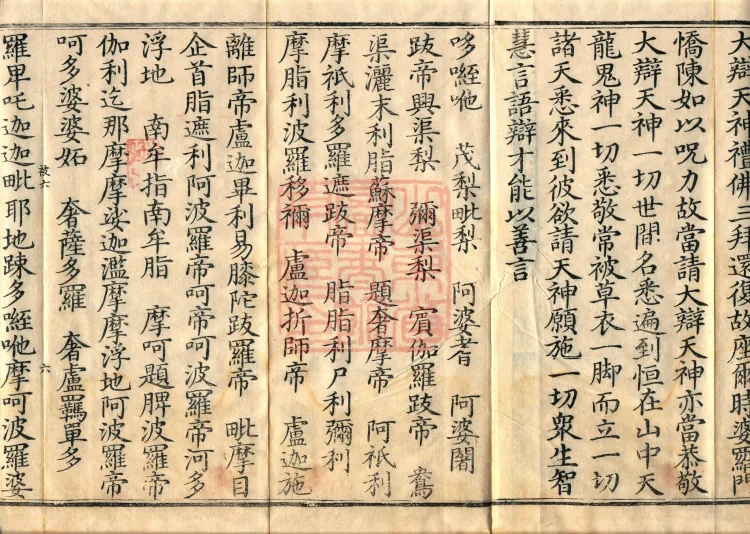 大辯天神禮佛三拜還復故座爾時婆羅門
憍陳如以呪力故當請大辯天神亦當恭敬
大辯天神一切世間名悉遍到恒在山中天
龍鬼神一切悉敬常被草衣一脚而立一切
諸天悉來到彼欲請天神願施一切衆生智
慧言語辯才能以善言
哆絰咃 茂梨毗梨 阿婆耆 阿婆闍
跋帝興渠梨 彌渠梨 賓伽羅跋帝 鴦
渠灑末利脂蘇摩帝 題奢摩帝 阿祇利
摩祇利多羅遮跋帝 脂脂利尸利彌利
摩脂利波羅移禰 盧迦折師帝 盧迦施
離師帝盧迦畢利易滕陀跋羅帝 毗摩目
企首脂遮利阿波羅帝呵帝呵波羅帝河多
浮地 南牟指南牟脂 摩呵題脾波羅帝
伽利迄那摩摩娑迦濫摩摩浮地阿波羅帝
呵多婆婆妬 奢薩多羅 奢盧羈單多
被六 六
羅卑吒迦迦毗耶地踈多絰咃摩呵波羅婆